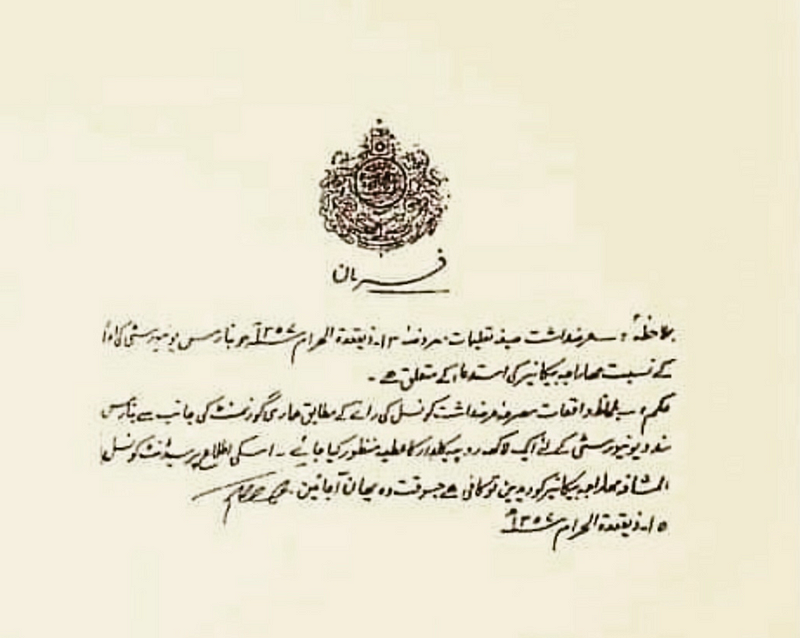 فرمان
بملاحظہ : عرضداشت صیغہ تعلیمات معروضہ ۱۳ ذیقعدۃ الحرام ۱۳۵۷ھ جو بنارس یونیورسٹی کی امداد
کے نسبت مہاراجہ بیکانیر کی استدعا کے متعلق ہے -
حکم : بلحاظ واقعات معروضہ عرضداشت کونسل کی رائے کے مطابق ہماری گورنمنٹ کی جانب سے بنارس
ہندو یونیورسٹی کے لئے ایک لاکھ روپیہ کلدار کا عطیہ منظور کیا جائے - اسکی اطلاع پریسیڈنٹ کونسل
بالمشافہ مہاراجہ بیکانیر کو دیدیں تو کافی ہے جسوقت وہ یہاں آجائیں -
۱۵ ذیقعدۃ الحرام ۱۳۵۷ھ